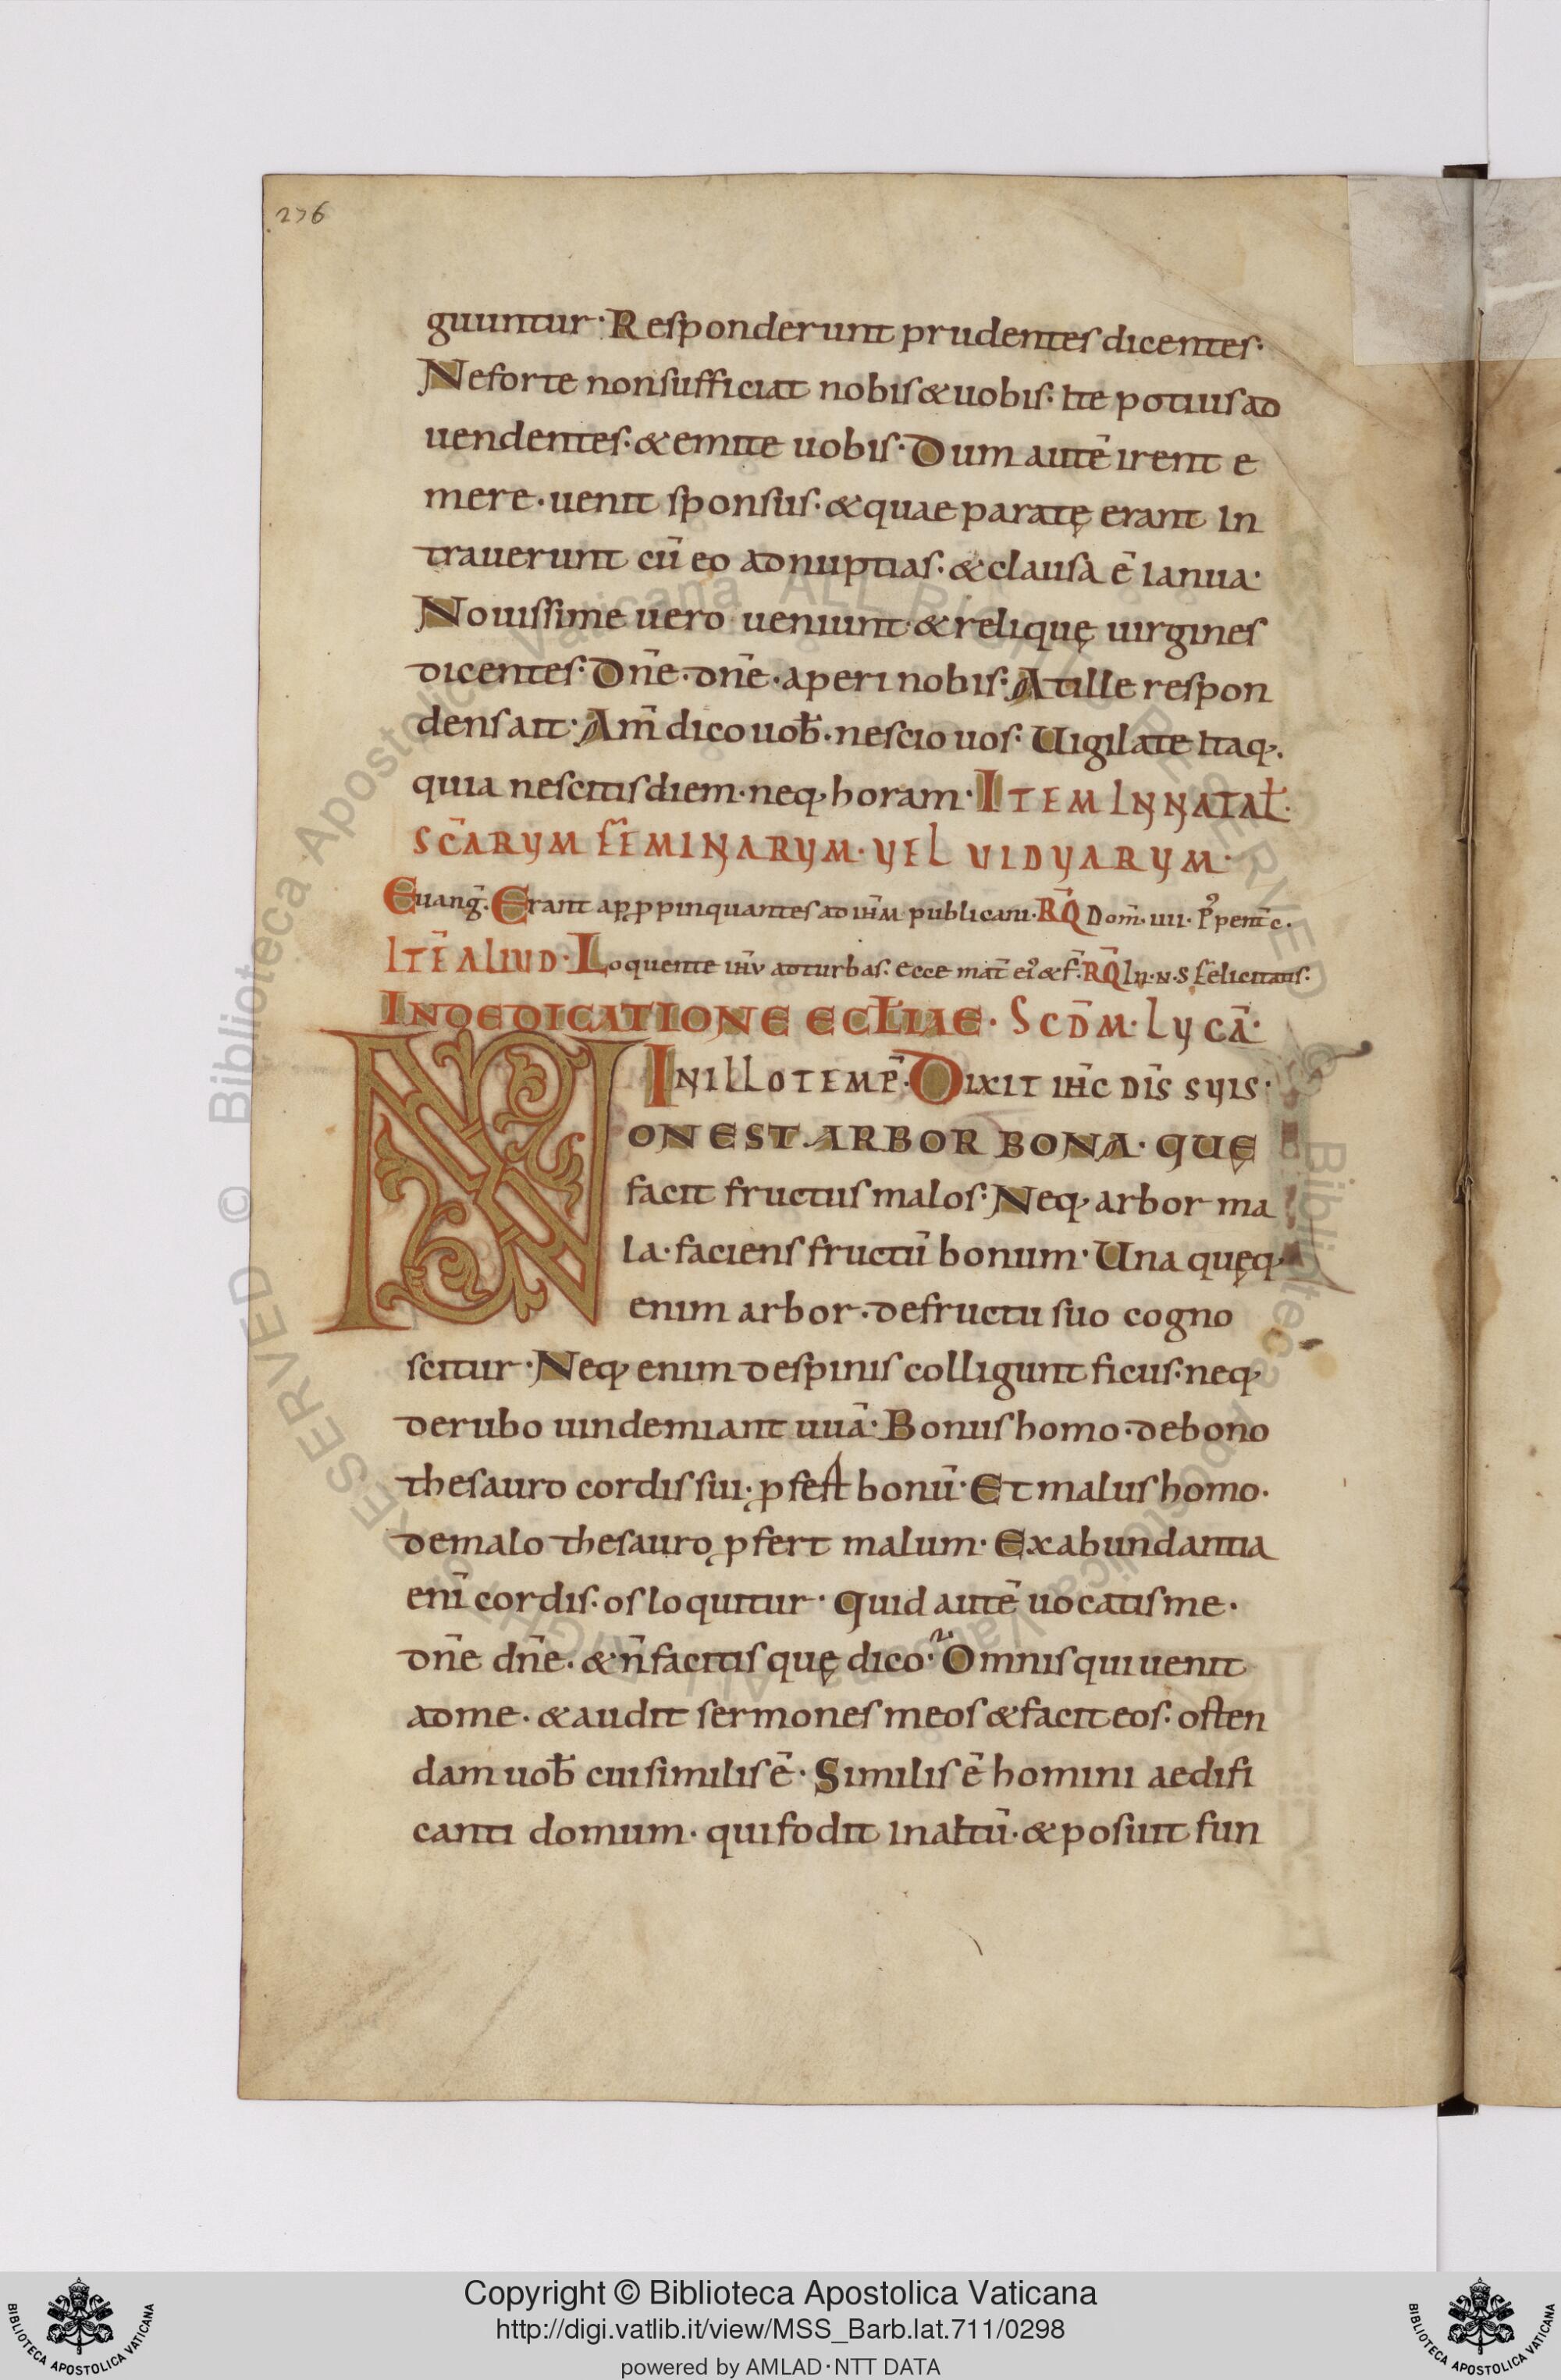 276
guuntur· Responderunt prudentes dicentes·
Ne forte non sufficiat nobis & uobis· Ite potius ad
uendentes· & emite uobis· Dum autē irent e
mere· uenit sponsus· & quae paratę erant in
trauerunt cū eo ad nuptias· & clausa ē ianua·
Nouissime uero ueniunt & reliquę uirgines
dicentes· Dn̄e· dn̄e· aperi nobis· At ille respon
dens ait· Am̄ dico uob̄· nescio uos· Uigilate itaq·
quia nescitis diem· neq· horam· ITEM IN NATAL̄·
SC̄ARUM FEMINARUM· UEL UIDUARUM·
Euanḡ· Erant appropinquantes ad ih̄m publicani· RQ̄ Dom̄· iiii· p' pent̄c·
ITĒ ALIUD· Loquente ih̄u ad turbas· ecce mat̄ ei' & f̄· RQ̄ In· N· S felicitatis·
IN DEDICATIONE ECL̄IAE· SCDM̄· LUCĀ·
IN ILLO TEMP̄· DIXIT IH̄C DIS̄ SUIS·
NON EST ARBOR BONA· QUĘ
facit fructus malos· Neq· arbor ma
la· faciens fructū bonum· Una quęq·
enim arbor· de fructu suo cogno
scitur· Neq· enim de spinis colligunt ficus· neq·
de rubo uindemiant uuā· Bonus homo· de bono
thesauro cordis sui· ꝓfert bonū· Et malus homo·
de malo thesauro ꝓfert malum· Ex abundantia
enī cordis· os loquitur· Quid autē uocatis me·
dn̄e dn̄e· & n̄ facitis quę dico· Omnis qui uenit
ad me· & audit sermones meos & facit eos· osten
dam uob̄ cui similis ē· Similis ē homini aedifi
canti domum· qui fodit in altū· & posuit fun
Copyright © Biblioteca Apostolica Vaticana
http://digi.vatlib.it/view/MSS_Barb.lat.711/0298
powered by AMLAD·NTT DATA